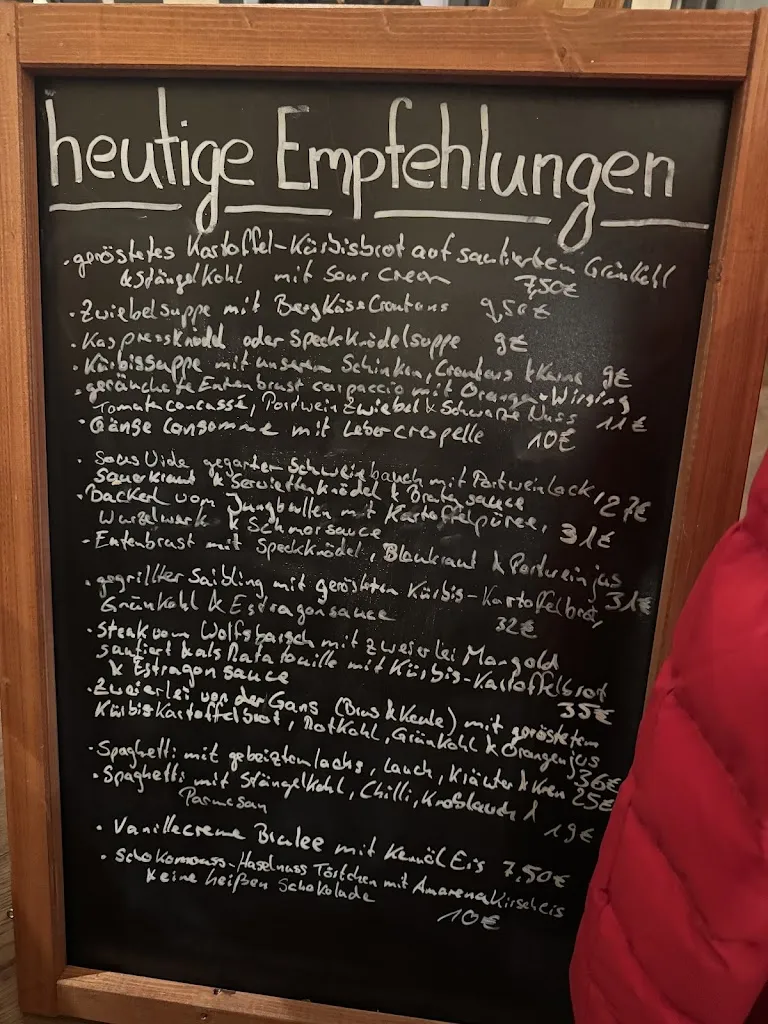 heutige Empfehlungen
· geröstetes Kartoffel-Kürbisbrot auf sautiertem Grünkohl
& Stängelkohl mit Sour Cream 7,50€
· Zwiebelsuppe mit BergKäseCroutons 9,50€
· Kaspressknödl oder Speckknödelsuppe 9€
· Kürbissuppe mit unserem Schinken, Croutons & Kerne 9€
· geräucherte Entenbrust carpaccio mit Orangen-Wirsing
Tomatenconcassé, Portweinzwiebel & Schwarze Nuss 11€
· Gänse Consomme mit Lebercrepelle 10€
· Sous Vide gegarter Schweinebauch mit Portweinlack, 27€
Sauerkraut & Serviettenknödel & Bratensauce
· Backerl vom Jungbullen mit Kartoffelpüree,
Wurzelwerk & Schmorsauce 31€
- Entenbrust mit Speckknödel, Blaukraut & Portweinjus
31€
· gegrillter Saibling mit geröstetem Kürbis-Kartoffelbrot,
Grünkohl & Estragonsauce 32€
· Steak vom Wolfsbarsch mit zweierlei Mangold
sautiert & als Ratatouille mit Kürbis-Kartoffelbrot
& Estragonsauce 35€
· Zweierlei von der Gans (Brus & Keule) mit geröstetem
KürbisKartoffelbrot, Rotkohl, Grünkohl & Orangenjus
36€
· Spaghetti mit gebeiztem lachs, Lauch, Kräuter & Kren 25€
· Spaghetti mit Stängelkohl, Chilli, Knoblauch &
Parmesan 19€
· Vanillecreme Brulee mit Kernöl Eis 7,50€
· Schokomouss-Haselnuss Törtchen mit AmarenaKirscheis
& eine heißen Schokolade
10€